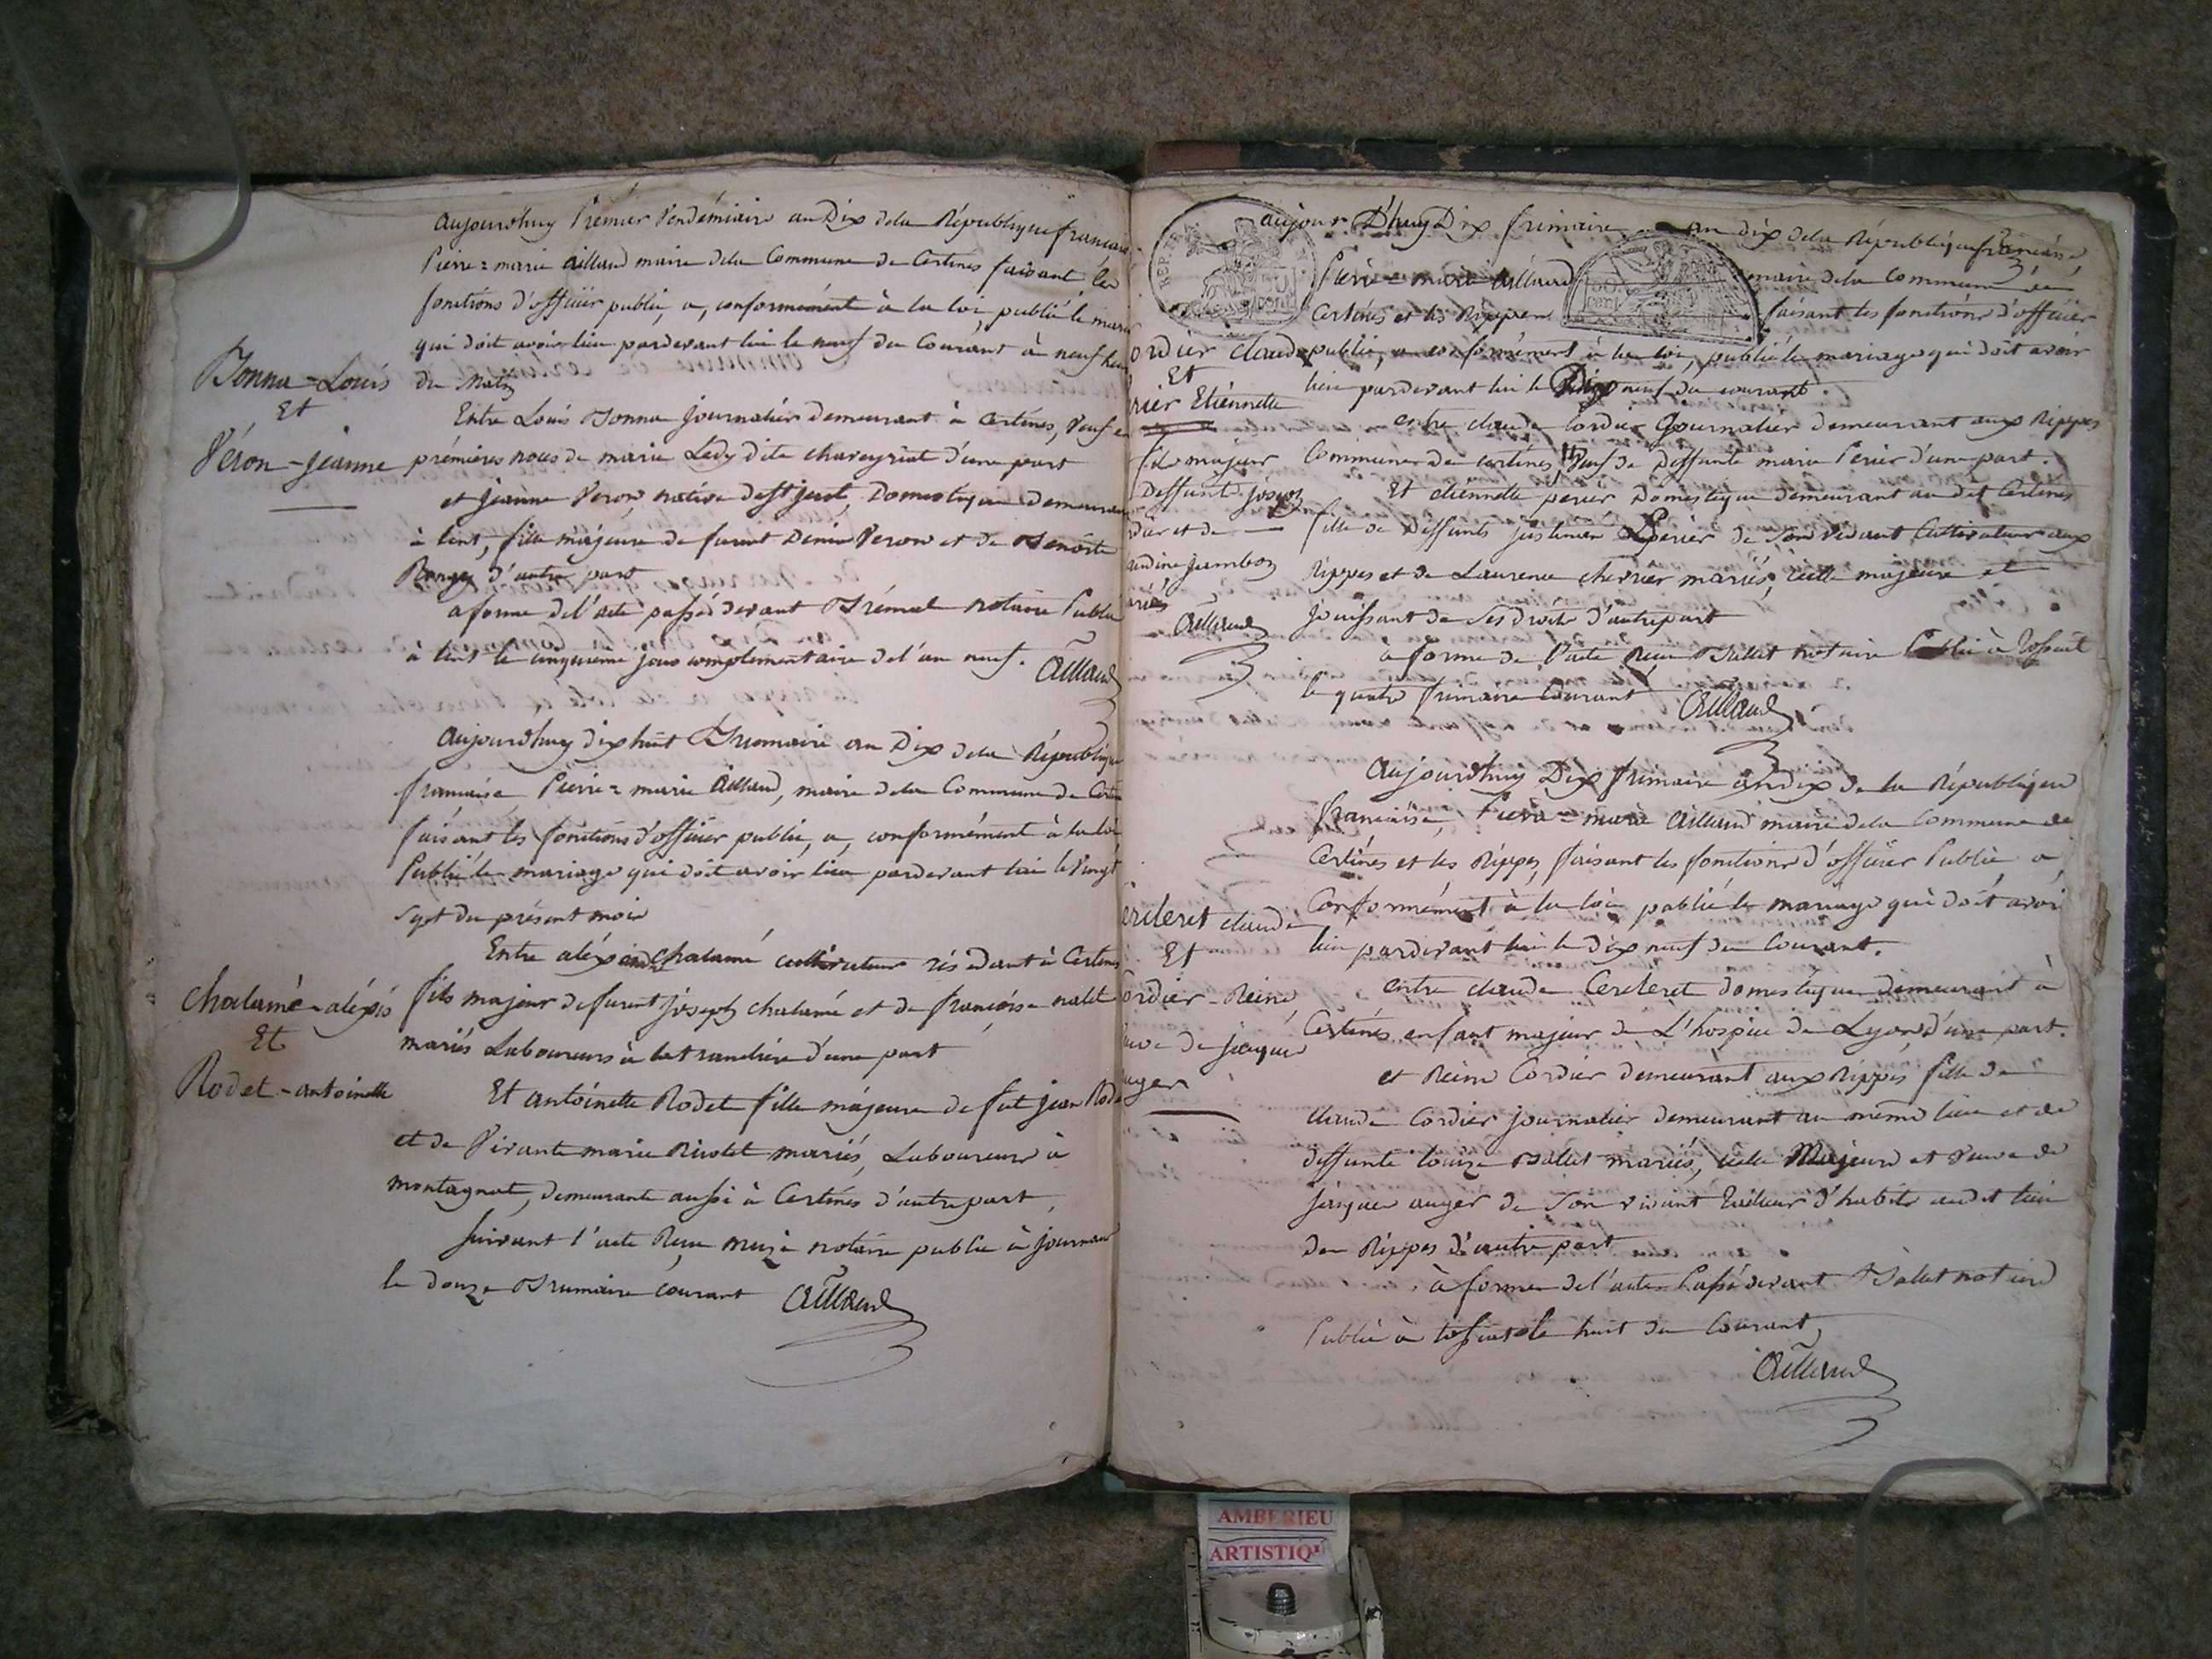 aujourdhuy Premier Vendémiaire an Dix dela République francaise
Pierre = marie Aillaud maire dela Commune de Certines faisant les
fonctions d'officiér public, a, conformément à la loi, publié le maria
qui doit avoir lieu pardevant lui le neuf du Courant à neuf heu
du Matin
Bonna - Louis
Et
Véron - jeanne
Entre Louis Bonna journaliér demeurant à Certines, Veuf en
prémières noces de marie Ledy dite chareyriat d'une part
et jeanne Veron, native de St just, Domestique demeuran
à lent, fille majeure de furent Denis Veron et de Benoite
d'autre part
a forme de l'acte passé devant Brémal notaire Public
à lent le cinquieme jour complémentaire de l'an neuf. Aillaud
Aujourdhuy dix huit Brumaire an Dix dela République
francaise Pierre = marie Aillaud, maire dela Commune de Certin
faisant les fonctions d'officier public, a, conformément à la loi
Publié le mariage qui doit avoir lieu pardevant lui le Vingt
sept du présent mois
Chalamé - aléxis
Et
Rodet - antoinette
Entre aléxis Chalamé cultivateur résidant à Certines
fils majeur de furent joseph chalamé et de francoise nalet
mariés Laboureurs à la tranclière d'une part
Et antoinette Rodet fille majeure de fut jean Rode
et de Vivante marie Rivolet mariés, Laboureurs à
montagnat, demeurante aussi à Certines d'autre part,
suivant l'acte Recu notaire public à journan
le douze Brumaire courant Aillaud
aujour D'huy Dix frimaire an dix dela République francaise,
Pierre = marie Aillaud maire dela Commune de
Certines et les Rippes faisant les fonctions d'officier
public, a conformément à la loi, publié le mariage qui doit avoir
lieu pardevant lui le Dix neuf du courant.
ordier claude
Et
rier Etiénnette
entre claude Cordier Journalier demeurant aux Rippes
Commune de certines, Veuf de Deffunte marie Perier d'une part.
fils majeur
Deffunt joseph
dier et de
audine jambon
ariés
Aillaud
Et etiénnette periér Domestique demeurant au dit Certines
fille de Deffunts Périer de Son Vivant Cultivateur aux
Rippes et de Laurence chevrier mariés, icelle majeure et
jouissant de Ses droits d'autre part
à forme de l'acte Recu Ballet notaire Public à Tossiat
le quatre frimaire Courant Aillaud
Aujourdhuy Dix frimaire an dix de la République
francaise, Pierre = marie Aillaud maire dela Commune de
Certines et les Rippes, faisant les fonctions d'officier Public a,
Conformément à la loi publié le mariage qui doit avoir
lieu pardevant lui le dix neuf du Courant.
ercleret claude
Et
ordier - Reine,
uve de jacques
uger
entre claude Cercleret domestique demeurant à
Certines enfant majeur de L'hospice de Lyon, d'une part.
et Reine Cordier demeurant aux Rippes fille de
claude Cordier journalier demeurant au même lieu et de
deffunte louize Ballet mariés, icelle Majeure et Veuve de
jacques auger de Son vivant tailleur d'habits audit lieu
des Rippes d'autre part
à forme de l'acte Passé devant Ballet notaire
Public à tossiat le huit du Courant,
Aillaud
AMBERIEU
ARTISTIQ